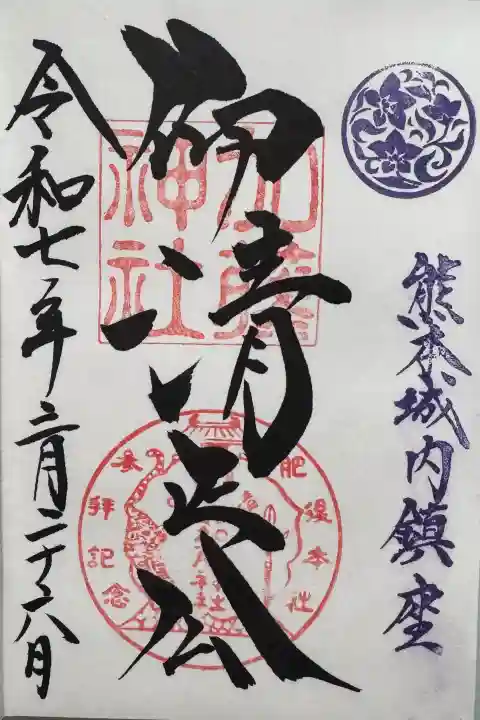 熊本城内鎮座
仰清正公
加藤神社
肥後本社
拜記念
令和七年二月二十六日